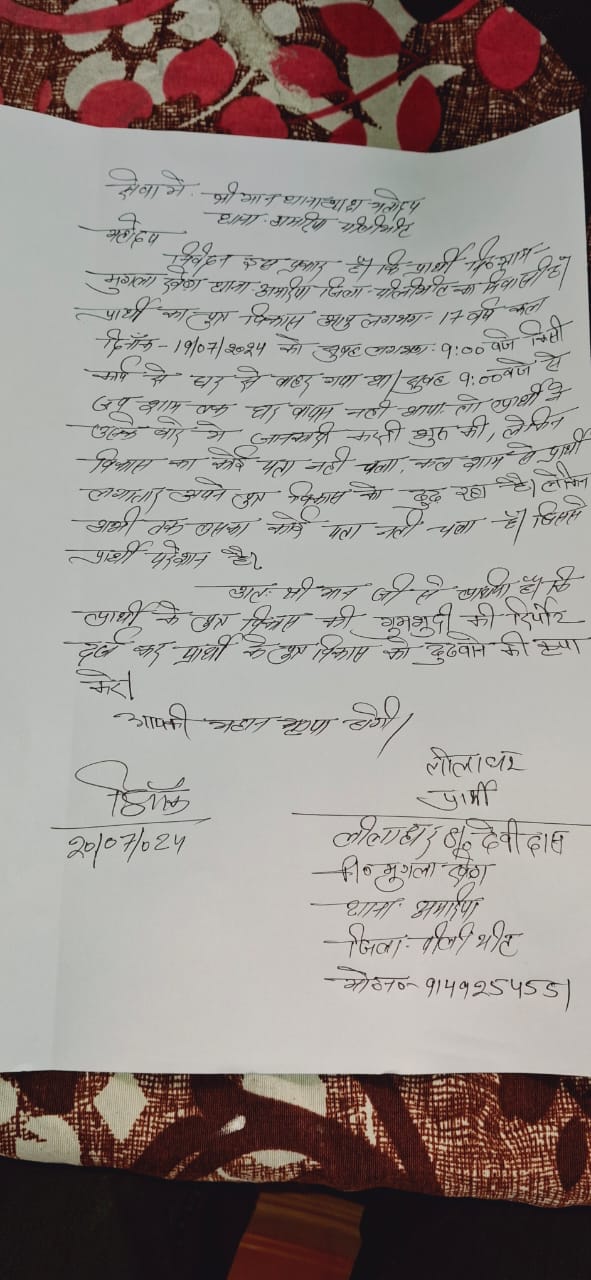 सेवा में, श्री मान थानाध्यक्ष महोदय
थाना अमरिया पीलीभीत
महोदय
निवेदन इस प्रकार है कि प्रार्थी नि० ग्राम
मुगला खेडा थाना अमरिया जिला-पीलीभीत का निवासी है।
प्रार्थी का पुत्र विकास आयु लगभग- 17 वर्ष कल
दिनाँक - 19/07/2024 को सुबह लगभग: 9:00 बजे किसी
कार्य से घर से बाहर गया था। सुबह 9:00 बजे से
जब शाम तक घर वापस नही आया. तो प्रार्थी ने
उसके बारे मे जानकारी करनी शुरु की, लेकिन
विकास का कोई पता नही चला. कल शाम से प्रार्थी
लगातार अपने पुत्र विकास को ढूढ रहा है। लेकिन
अभी तक उसका कोई पता नही चला है। जिससे
प्रार्थी परेशान है।
अतः श्री मान जी से प्रार्थना है। कि
प्रार्थी के पुत्र विकास की गुमशुदी की रिपोर्ट
दर्ज कर प्रार्थी के पुत्र विकास को ढुढवाने की कृपा
करे।
आपकी महान कृपा होगी।
लीलाधर
दिनाँक
प्रार्थी
20/07/024
लीलाधर s/o देवी दास
नि० मुगला खेडा
थाना: अमरिया
जिला:- पीलीभीत
मो०न०- 9149254551